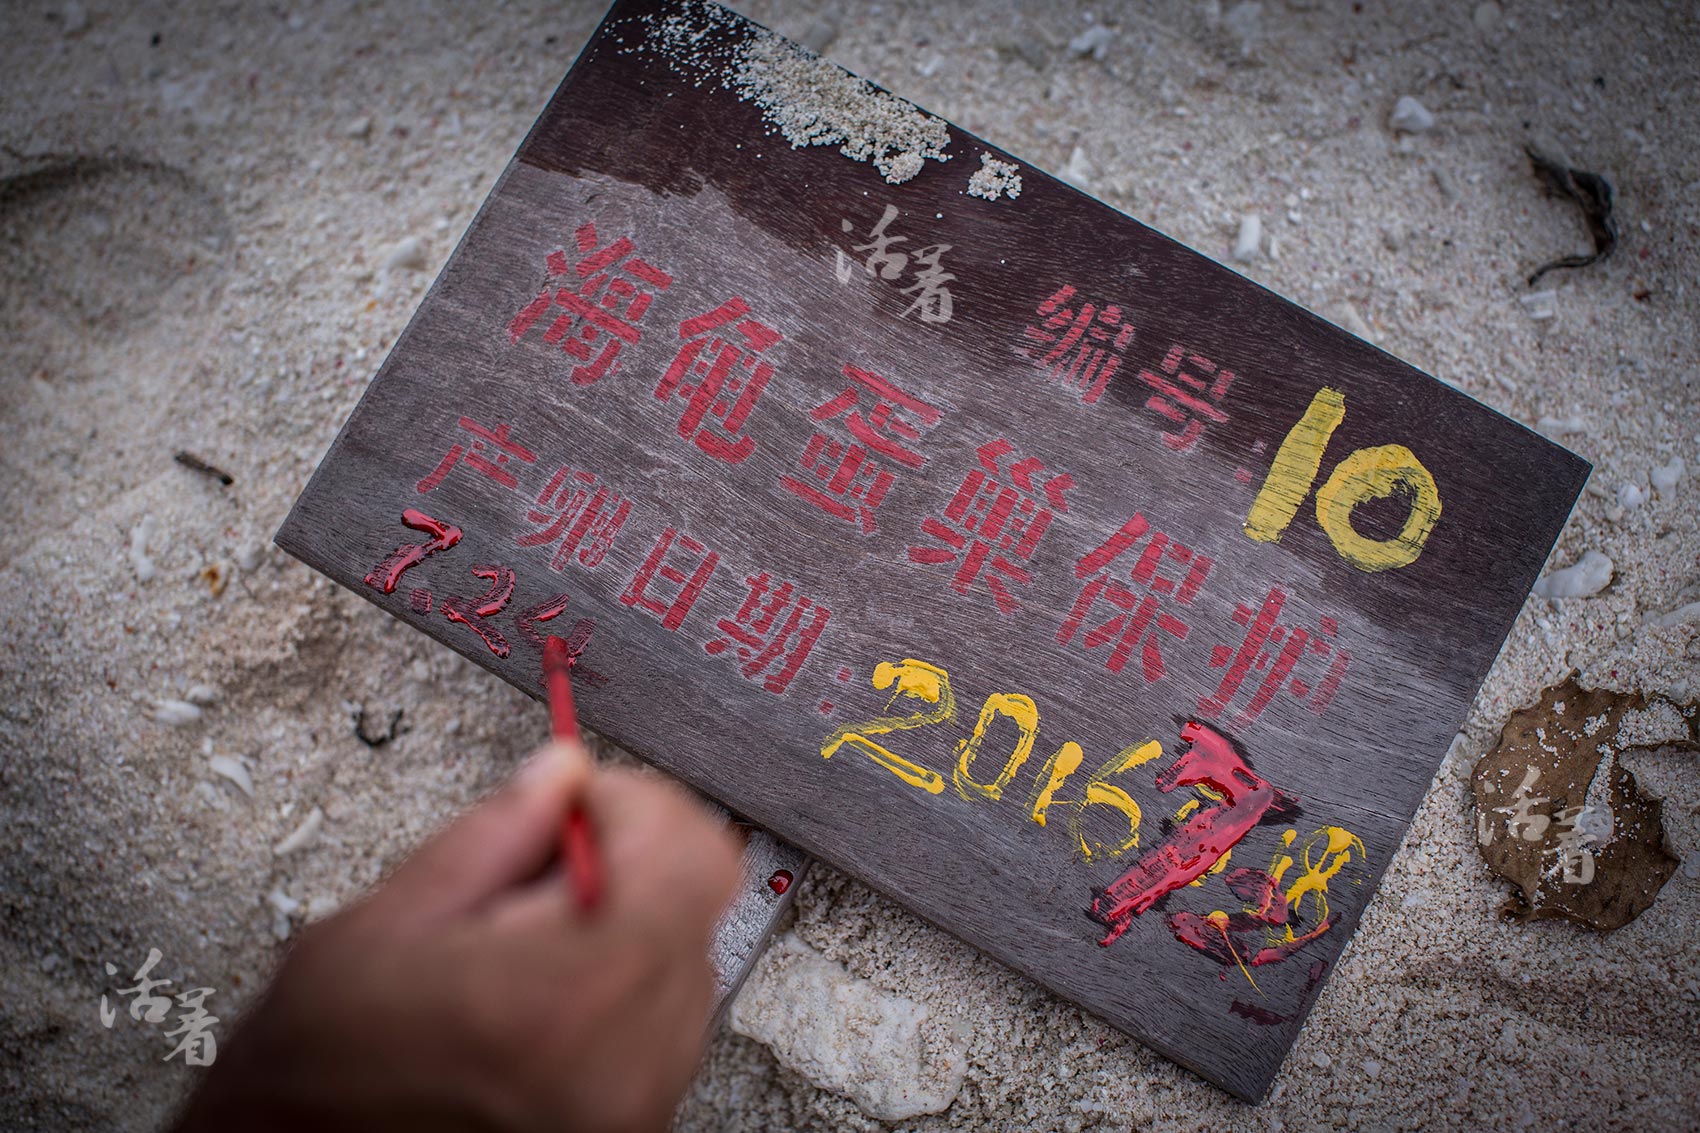 编号:10
海龟蛋巢保护
产卵日期:2016.7
7.24
活着
活着
活着